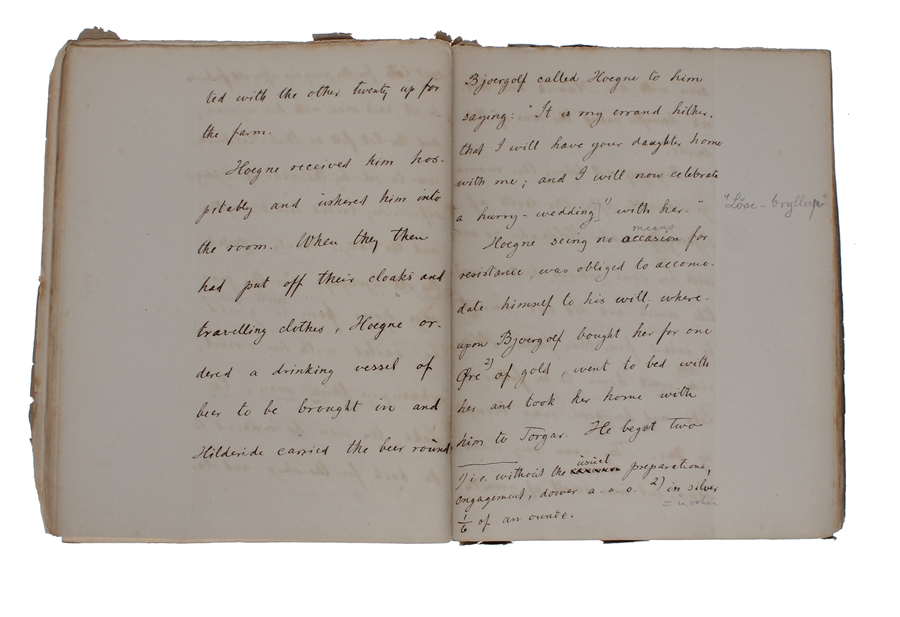 ted with the other twenty up for
the farm.
Hoegne received him hos-
pitably and ushered him into
the room. When they then
had put off their cloaks and
travelling clothes, Hoegne or-
dered a drinking vessel of
beer to be brought in and
Hilderide carried the beer round
Bjoergolf called Hoegne to him
saying: "It is my errand hither,
that I will have your daughter home
with me; and I will now celebrate
a hurry-wedding 1) with her."
"Löse-bryllup"
means
Hoegne seing no occasion for
resistance, was obliged to accomo-
date himself to his will, where-
upon Bjoergolf bought her for one
Øre 2) of gold, went to bed with
her and took her home with
him to Torgar. He begot two
1) i.e. without the usual preparations,
engagement, dower a.o.o. 2) in silver
1/6 of an ounce.